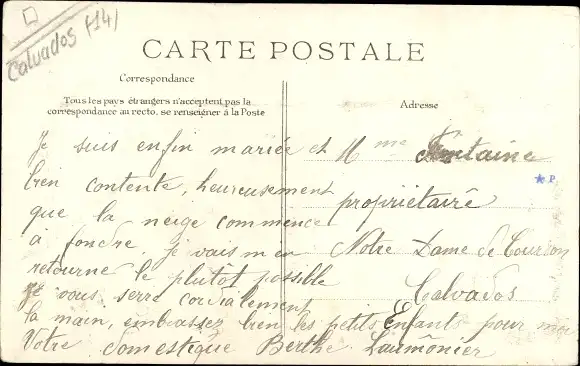 Calvados (14)
CARTE POSTALE
Correspondance
Tous les pays étrangers n'acceptent pas la
correspondance au recto. se renseigner à la Poste
Je suis enfin mariée et
bien contente, heureusement
que la neige commence
à fondre. je vais m'en
retourné le plutôt possible
Je vous serre cordialement
la main, embrassez bien les petits Enfants pour moi
Votre domestique Berthe Laumônier
Adresse
Mme Fontaine
propriétaire
Notre Dame de Courson
Calvados
★ P.